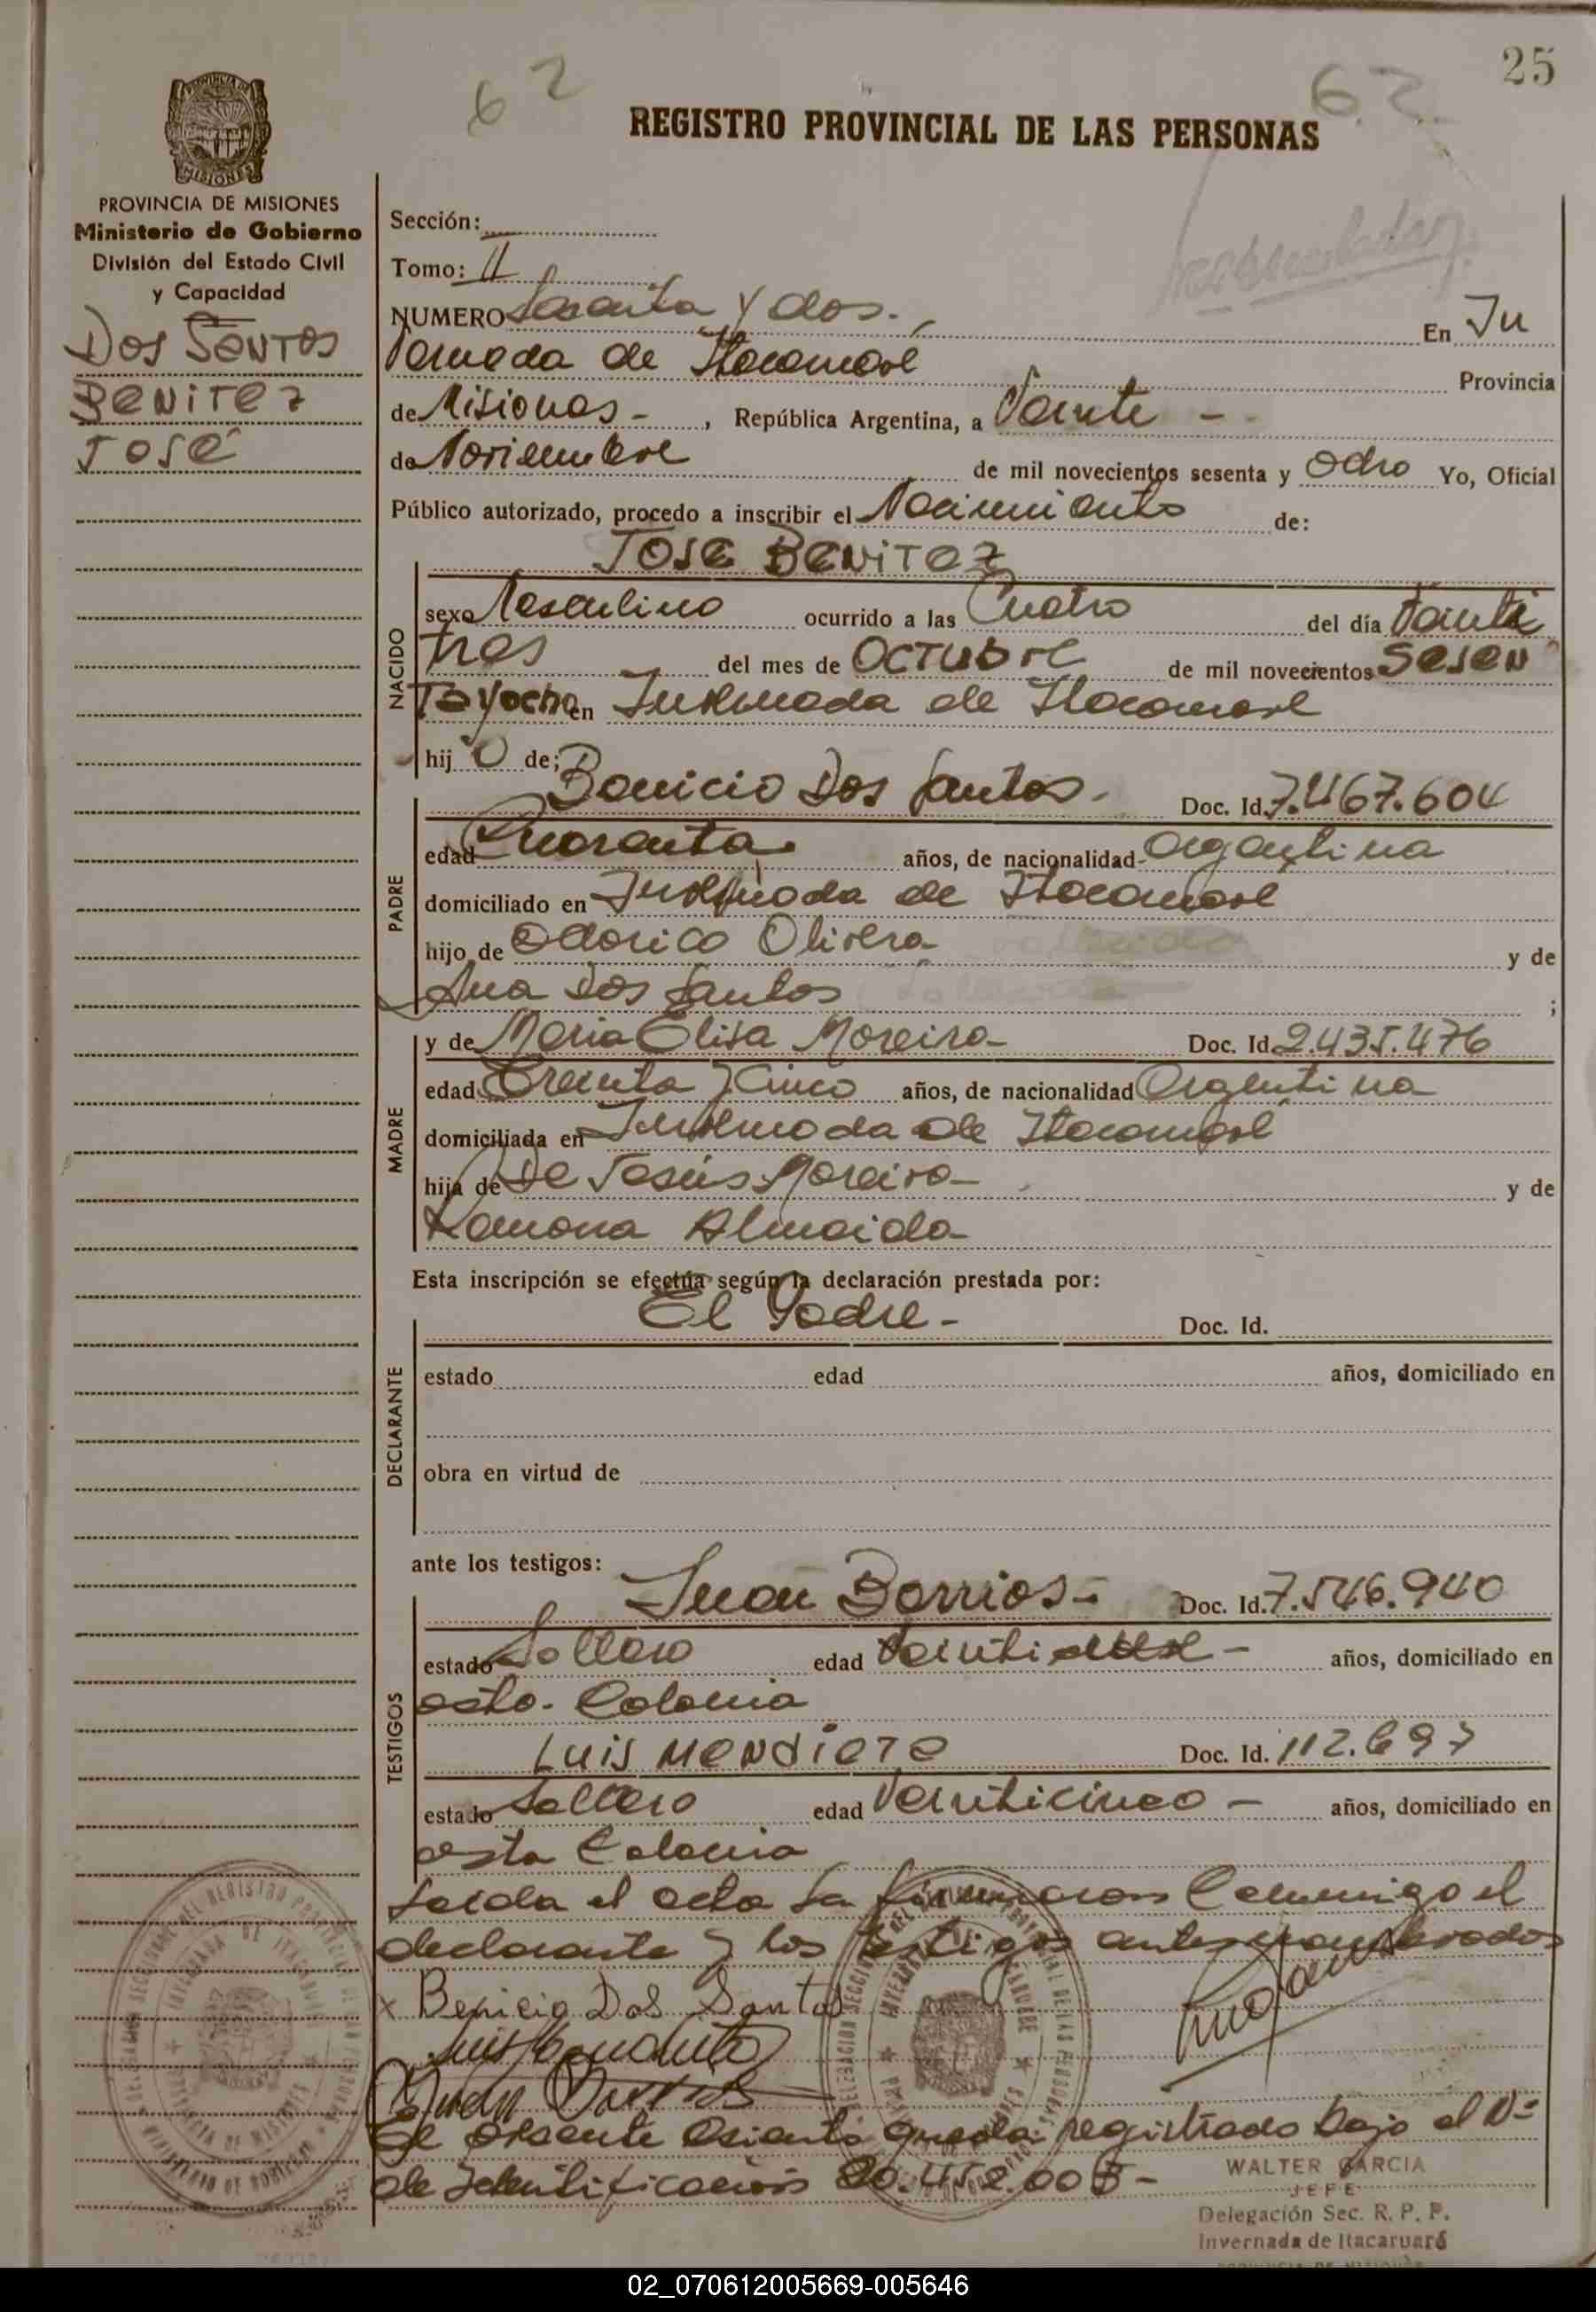 25
62
62
REGISTRO PROVINCIAL DE LAS PERSONAS
PROVINCIA DE MISIONES
Ministerio de Gobierno
División del Estado Civil
y Capacidad
DOS SANTOS
BENITEZ
JOSÉ
Sección:
Tomo: II
NUMERO Sesenta y dos. En In
vernada de Itacaruaré Provincia
de Misiones - , República Argentina, a Veinte -
de Noviembre de mil novecientos sesenta y ocho Yo, Oficial
Público autorizado, procedo a inscribir el Nacimiento de:
JOSE BENITEZ
NACIDO
sexo Masculino ocurrido a las Cuatro del día Veinti
tres del mes de OCTUBRE de mil novecientos SESEN
TAYocho en Invernada de Itacaruaré
hij o de;
PADRE
Benicio Dos Santos - Doc. Id. 7.467.604
edad Cuarenta años, de nacionalidad Argentina
domiciliado en Invernada de Itacaruaré
hijo de Odorico Olivera y de
Ana Dos Santos ;
MADRE
y de Maria Elisa Moreira Doc. Id. 2.435.476
edad Treinta y Cinco años, de nacionalidad Argentina
domiciliada en Invernada de Itacaruaré
hija de De Jesús Moreira y de
Ramona Almeida
Esta inscripción se efectúa según la declaración prestada por:
DECLARANTE
El Padre - Doc. Id.
estado edad años, domiciliado en
obra en virtud de
ante los testigos:
TESTIGOS
Juan Barrios - Doc. Id. 7.546.940
estado Soltero edad años, domiciliado en
esta Colonia
LUIS Doc. Id. 112.697
estado Soltero edad Veinticinco - años, domiciliado en
esta Colonia
Leida el acta la firmaron Conmigo el
declarante y los testigos antes nombrados
x Benicio Dos Santos
Juan Barrios
El presente asiento queda registrado bajo el Nº
de Identificación
WALTER GARCIA
JEFE
Delegación Sec. R. P. P.
Invernada de Itacaruaré
02_070612005669-005646